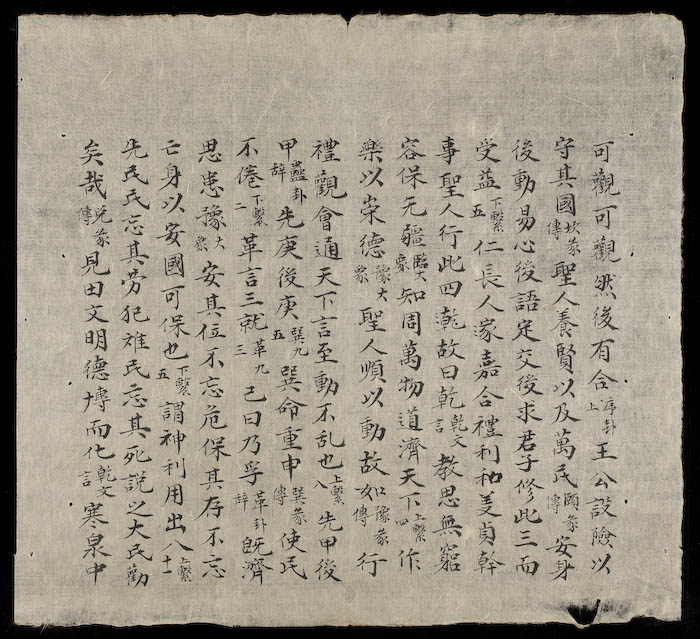 可觀可觀然後有合序卦上王公設險以
守其國坎彖傳聖人養賢以及萬民頤彖傳安身
後動易心後語定交後求君子修此三而
受益下繫五仁長人家嘉合禮利和美貞幹
事聖人行此四漧故曰乾乾文言教思無窮
容保无疆臨大象知周萬物道濟天下上繫四作
樂以崇德豫大象聖人順以動故如豫彖傳行
禮觀會通天下言至動不乱也上繫八先甲後
甲蠱卦辭先庚後庚巽九五巽命重申巽彖傳使民
不倦下繫二革言三就革九三己曰乃孚革卦辭既濟
思患豫大象安其位不忘危保其存不忘
亡身以安國可保也下繫五謂神利用出入上繫十一
先民民忘其勞犯難民忘其死説以大民勸
矣哉兌彖傳見田文明德博而化乾文言寒泉中